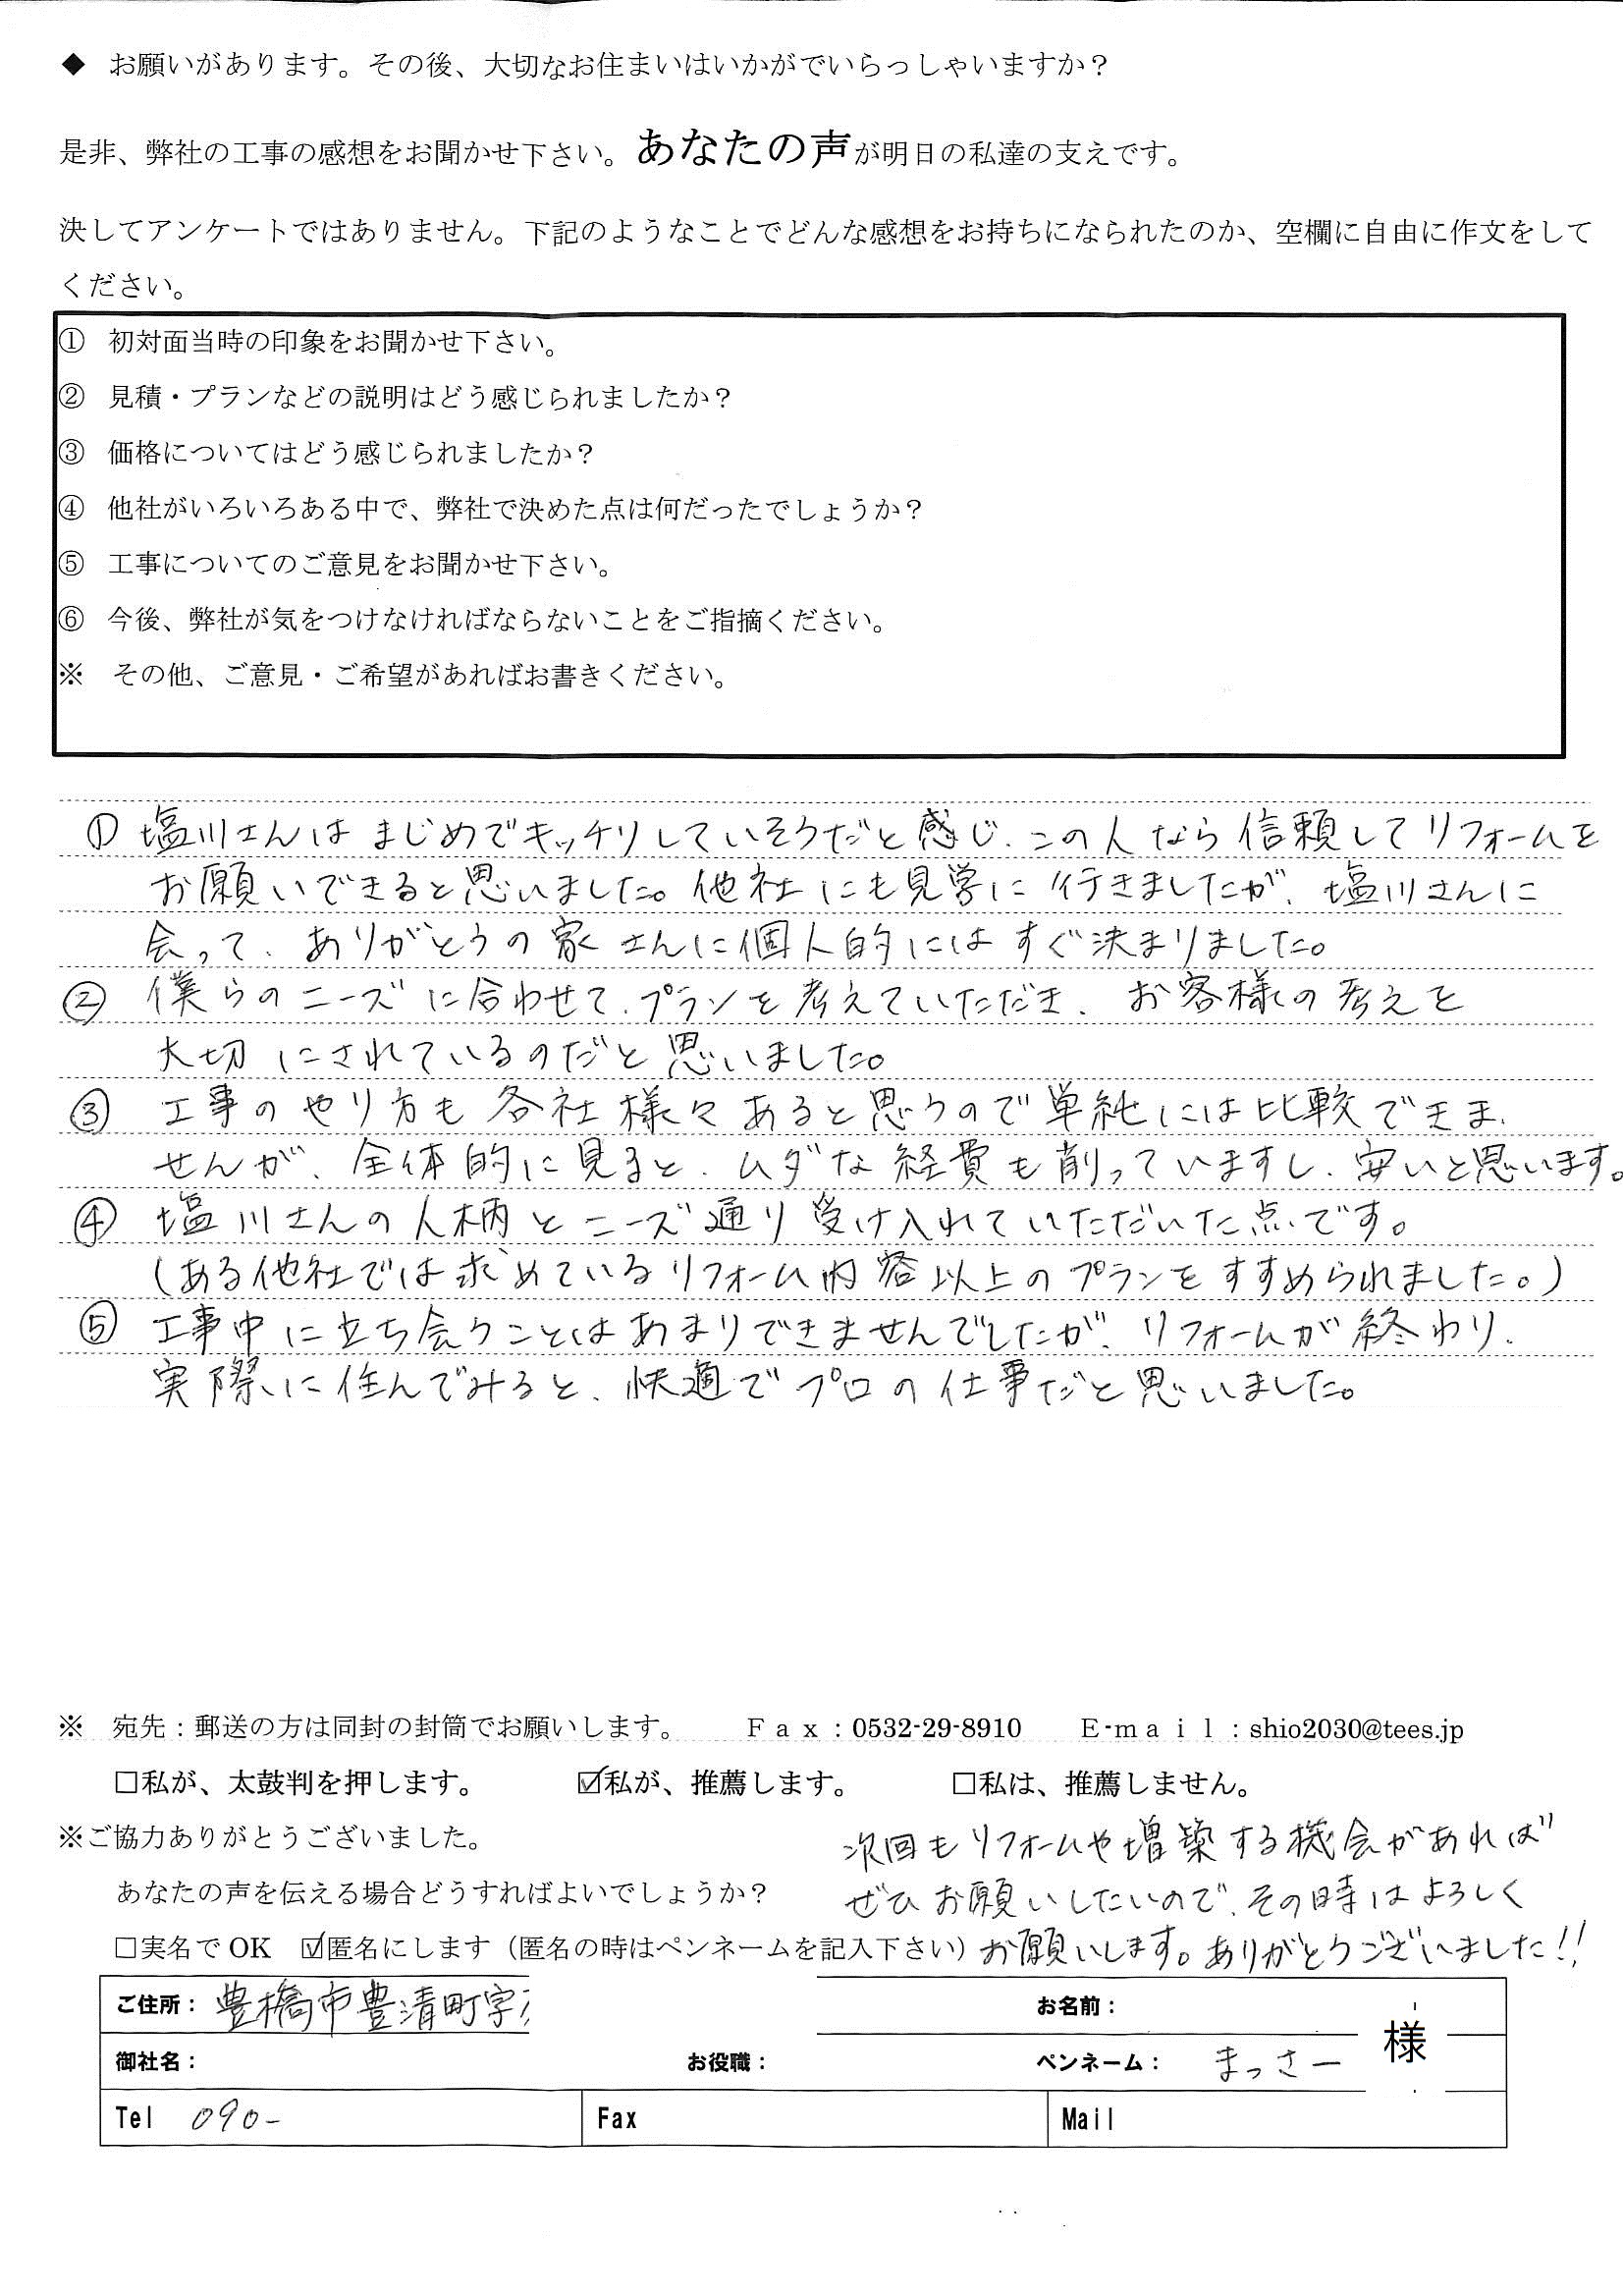 ◆ お願いがあります。その後、大切なお住まいはいかがでいらっしゃいますか？
是非、弊社の工事の感想をお聞かせ下さい。あなたの声が明日の私達の支えです。
決してアンケートではありません。下記のようなことでどんな感想をお持ちになられたのか、空欄に自由に作文をして
ください。
① 初対面当時の印象をお聞かせ下さい。
② 見積・プランなどの説明はどう感じられましたか？
③ 価格についてはどう感じられましたか？
④ 他社がいろいろある中で、弊社で決めた点は何だったでしょうか？
⑤ 工事についてのご意見をお聞かせ下さい。
⑥ 今後、弊社が気をつけなければならないことをご指摘ください。
※ その他、ご意見・ご希望があればお書きください。
① 塩川さんはまじめでキッチリしていそうだと感じ、この人なら信頼してリフォームを
お願いできると思いました。他社にも見学に行きましたが、塩川さんに
会って、ありがとうの家さんに個人的にはすぐ決まりました。
② 僕らのニーズに合わせて、プランを考えていただき、お客様の考えを
大切にされているのだと思いました。
③ 工事のやり方も各社様々あると思うので単純には比較できま、
せんが、全体的に見ると、ムダな経費も削っていますし、安いと思います。
④ 塩川さんの人柄とニーズ通り受け入れていただいた点です。
（ある他社では求めているリフォーム内容以上のプランをすすめられました。）
⑤ 工事中に立ち会うことはあまりできませんでしたが、リフォームが終わり、
実際に住んでみると、快適でプロの仕事だと思いました。
※ 宛先：郵送の方は同封の封筒でお願いします。 Ｆａｘ：0532-29-8910 Ｅ-ｍａｉｌ：shio2030@tees.jp
□私が、太鼓判を押します。 ☑私が、推薦します。 □私は、推薦しません。
※ご協力ありがとうございました。
次回もリフォームや増築する機会があれば
あなたの声を伝える場合どうすればよいでしょうか？
ぜひお願いしたいので、その時はよろしく
□実名で OK ☑匿名にします（匿名の時はペンネームを記入下さい） お願いします。ありがとうございました!!
ご住所： 豊橋市豊清町字 お名前： 様
御社名： お役職： ペンネーム： まっさー
Tel 090- Fax Mail